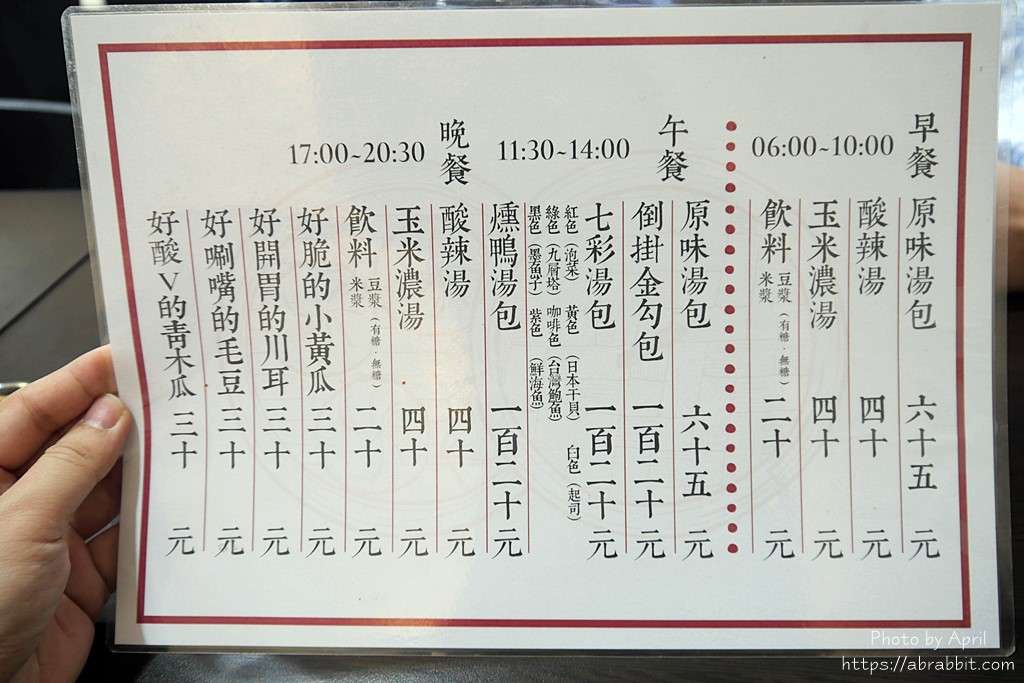 早餐 06:00~10:00
原味湯包 六十五 元
酸辣湯 四十 元
玉米濃湯 四十 元
飲料 豆漿(有糖.無糖) 米漿 二十 元
午餐 11:30~14:00
晚餐 17:00~20:30
原味湯包 六十五 元
倒掛金勾包 一百二十 元
七彩湯包 一百二十 元
紅色(泡菜) 黃色(日本干貝) 白色(起司)
綠色(九層塔) 咖啡色(台灣鮑魚)
黑色(墨魚子) 紫色(鮮海魚)
燻鴨湯包 一百二十 元
酸辣湯 四十 元
玉米濃湯 四十 元
飲料 豆漿(有糖.無糖) 米漿 二十 元
好脆的小黃瓜 三十 元
好開胃的川耳 三十 元
好唰嘴的毛豆 三十 元
好酸V的青木瓜 三十 元
Photo by April
https://abrabbit.com